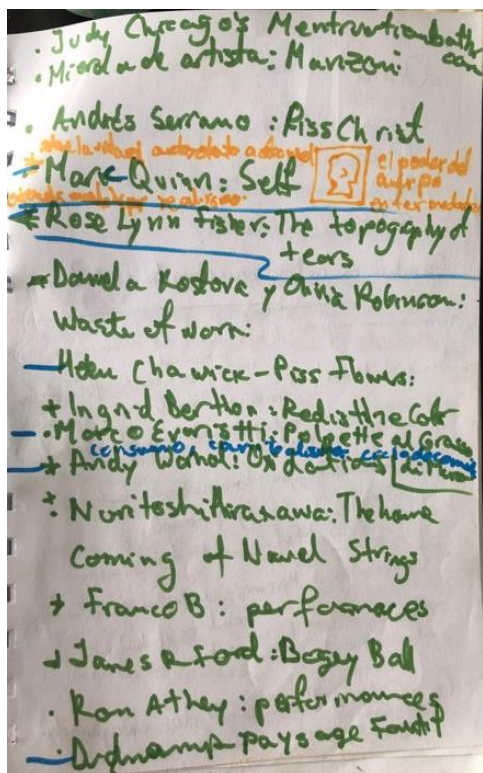 . Judy Chicago's Mentruation bath
. Mierda de artista: Manzoni
. Andrés Serrano: Piss Christ
el poder del
cuerpo
Marc Quinn: Self
Rose Lynn Fisher: The topography of
tears
Daniela Kostova y Olivia Robinson:
Waste of work:
Helen Chawick - Piss Flowers:
+ Ingrid Berthon: Red is the Color
. Marco Evaristti: Polpette al Grasso
consumo, canibalismo,
* Andy Warhol: Oxidations
Noritoshi Hirakawa: The home
coming of Navel Strings
+ Franco B: performances
James R Ford: Bogey Ball
. Ron Athey: performances
. Duchamp paysage Fautif